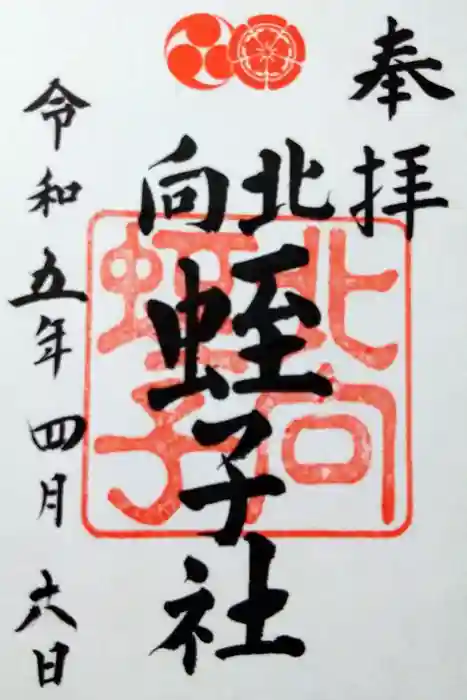 奉拝
北向
蛭子社
令和五年四月六日
北向
蛭子